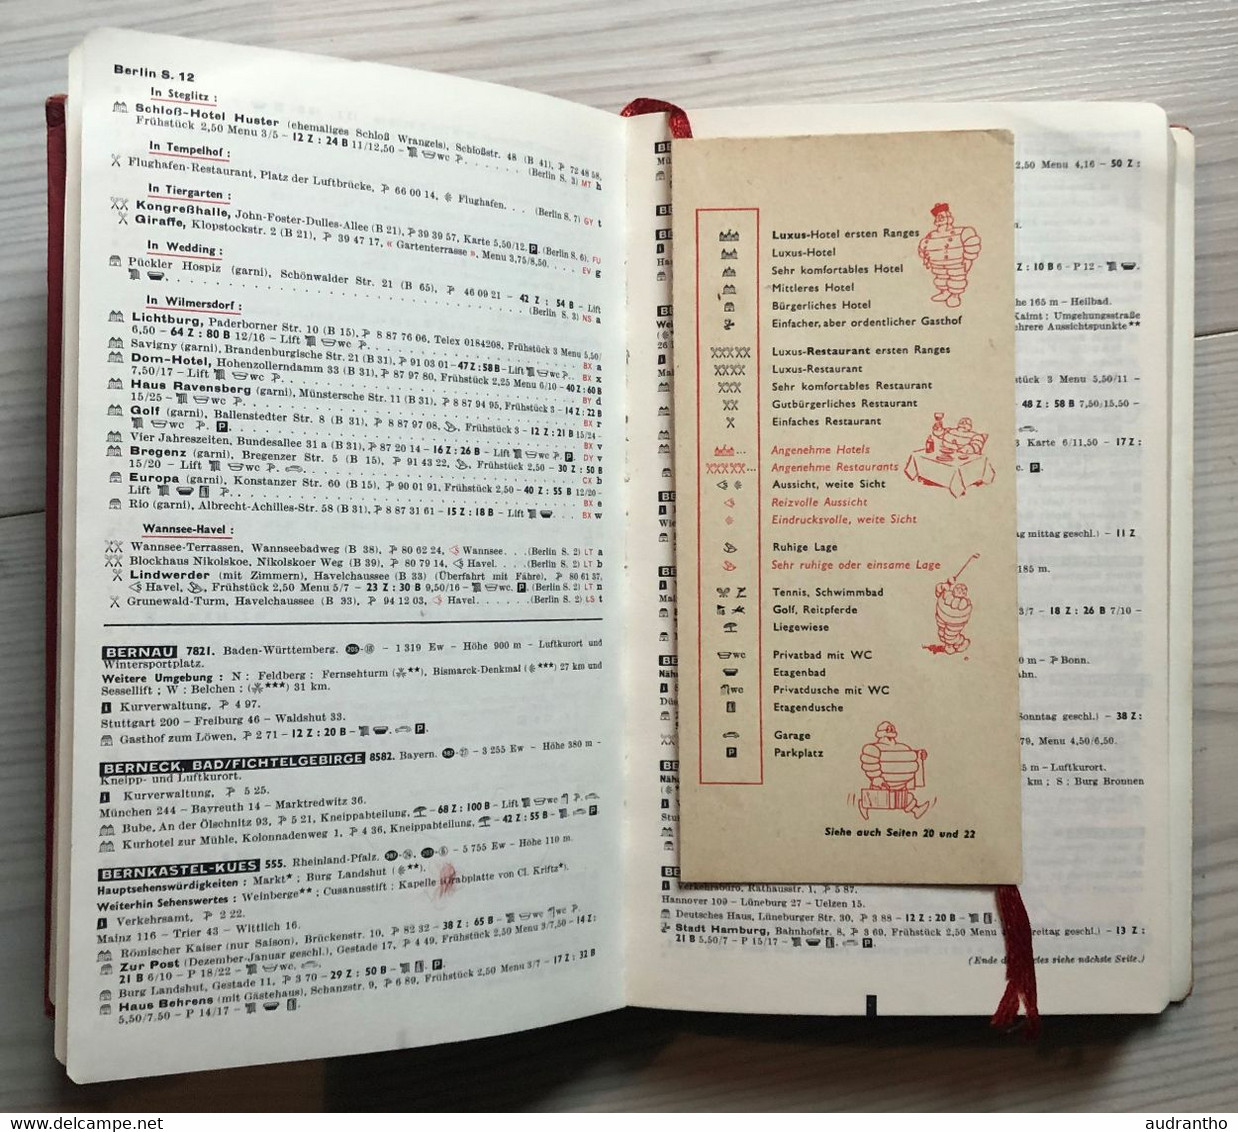 Berlin S. 12
In Steglitz :
Schloß-Hotel Huster (ehemaliges Schloß Wrangels), Schloßstr. 48 (B 41), 72 48 58,
Frühstück 2,50 Menu 3/5 – 12 Z : 24 B 11/12,50 – wc P. . . . . . (Berlin S. 3) MT h
In Tempelhof :
Flughafen-Restaurant, Platz der Luftbrücke, 66 00 14, Flughafen. . . (Berlin S. 7) GY t
In Tiergarten :
Kongreßhalle, John-Foster-Dulles-Allee (B 21), 39 39 57, Karte 5,50/12, P. (Berlin S. 6). FU
Giraffe, Klopstockstr. 2 (B 21), 39 47 17, « Gartenterrasse », Menu 3,75/8,50. . . . EV g
In Wedding :
Pückler Hospiz (garni), Schönwalder Str. 21 (B 65), 46 09 21 – 42 Z : 54 B – Lift
(Berlin S. 3) NS a
In Wilmersdorf :
Lichtburg, Paderborner Str. 10 (B 15), 8 87 76 06, Telex 0184208, Frühstück 3 Menu 5,50/
6,50 – 64 Z : 80 B 12/16 – Lift wc P. . . . BX a
Savigny (garni), Brandenburgische Str. 21 (B 31), 91 03 01 – 47 Z : 58 B – Lift wc P. . . BX x
Dom-Hotel, Hohenzollerndamm 33 (B 31), 87 97 80, Frühstück 2,25 Menu 6/10 – 40 Z : 60 B
7,50/17 – Lift wc P. . . . BY d
Haus Ravensberg (garni), Münstersche Str. 11 (B 31), 8 87 94 95, Frühstück 3 – 14 Z : 22 B
15/25 – wc P. . . . BX r
Golf (garni), Ballenstedter Str. 8 (B 31), 8 87 97 08, Frühstück 3 – 12 Z : 21 B 15/24 –
wc P. P. . . . BX v
Vier Jahreszeiten, Bundesallee 31 a (B 31), 87 20 14 – 16 Z : 26 B – Lift wc P. P. DY v
Bregenz (garni), Bregenzer Str. 5 (B 15), 91 43 22, Frühstück 2,50 – 30 Z : 50 B
15/20 – Lift wc P. . . . CX b
Europa (garni), Konstanzer Str. 60 (B 15), 90 01 91, Frühstück 2,50 – 40 Z : 55 B 12/20 –
Lift P. . . . BX e
Rio (garni), Albrecht-Achilles-Str. 58 (B 31), 8 87 31 61 – 15 Z : 18 B – Lift . . . BX w
Wannsee-Havel :
Wannsee-Terrassen, Wannseebadweg (B 38), 80 62 24, Wannsee. . .(Berlin S. 2) LT a
Blockhaus Nikolskoe, Nikolskoer Weg (B 39), 80 79 14, Havel. . .(Berlin S. 2) LT b
Lindwerder (mit Zimmern), Havelchaussee (B 33) (Überfahrt mit Fähre), 80 61 37,
Havel, Frühstück 2,50 Menu 5/7 – 23 Z : 30 B 9,50/16 – wc. P. (Berlin S. 2) LT n
Grunewald-Turm, Havelchaussee (B 33), 94 12 03, Havel. . . . . .(Berlin S. 2) LS t
BERNAU 7821. Baden-Württemberg. – 1 319 Ew – Höhe 900 m – Luftkurort und
Wintersportplatz.
Weitere Umgebung : N : Feldberg : Fernsehturm (**), Bismarck-Denkmal (***) 27 km und
Sessellift ; W : Belchen : (***) 31 km.
Kurverwaltung, 4 97.
Stuttgart 200 – Freiburg 46 – Waldshut 33.
Gasthof zum Löwen, 2 71 – 12 Z : 20 B – P.
BERNECK, BAD/FICHTELGEBIRGE 8582. Bayern. – 3 255 Ew – Höhe 380 m –
Kneipp- und Luftkurort.
Kurverwaltung, 5 25.
München 244 – Bayreuth 14 – Marktredwitz 36.
Bube, An der Ölschnitz 93, 5 21, Kneippabteilung, – 68 Z : 100 B – Lift wc P.
Kurhotel zur Mühle, Kolonnadenweg 1, 4 36, Kneippabteilung, – 42 Z : 55 B – P.
BERNKASTEL-KUES 555. Rheinland-Pfalz. – 5 755 Ew – Höhe 110 m.
Hauptsehenswürdigkeiten : Markt* ; Burg Landshut (**).
Weiterhin Sehenswertes : Weinberge** ; Cusanusstift : Kapelle (Grabplatte von Cl. Kriftz*).
Verkehrsamt, 2 22.
Mainz 116 – Trier 43 – Wittlich 16.
Römischer Kaiser (nur Saison), Brückenstr. 10, 82 32 – 38 Z : 65 B – wc wc P.
Zur Post (Dezember-Januar geschl.), Gestade 17, 4 49, Frühstück 2,50 Menu 3/7,50 – 14 Z :
21 B 6/10 – P 18/22 – wc.
Burg Landshut, Gestade 11, 3 70 – 29 Z : 50 B – P.
Haus Behrens (mit Gästehaus), Schanzstr. 9, 6 89, Frühstück 2,50 Menu 3/7 – 17 Z : 32 B
5,50/7,50 – P 14/17 –
Luxus-Hotel ersten Ranges
Luxus-Hotel
Sehr komfortables Hotel
Mittleres Hotel
Bürgerliches Hotel
Einfacher, aber ordentlicher Gasthof
Luxus-Restaurant ersten Ranges
Luxus-Restaurant
Sehr komfortables Restaurant
Gutbürgerliches Restaurant
Einfaches Restaurant
Angenehme Hotels
Angenehme Restaurants
Aussicht, weite Sicht
Reizvolle Aussicht
Eindrucksvolle, weite Sicht
Ruhige Lage
Sehr ruhige oder einsame Lage
Tennis, Schwimmbad
Golf, Reitpferde
Liegewiese
wc Privatbad mit WC
Etagenbad
wc Privatdusche mit WC
Etagendusche
Garage
P Parkplatz
Siehe auch Seiten 20 und 22
2,50 Menu 4,16 – 50 Z :
Z : 10 B 6 – P 12 –
he 165 m – Heilbad.
Kaimt : Umgebungsstraße
ehrere Aussichtspunkte**
stück 3 Menu 5,50/11 –
48 Z : 58 B 7,50/15,50 –
Karte 6/11,50 – 17 Z :
P.
ag mittag geschl.) – 11 Z
185 m.
3/7 – 18 Z : 26 B 7/10 –
0 m – Bonn.
ahn.
Sonntag geschl.) – 38 Z :
79, Menu 4,50/6,50.
5 m – Luftkurort.
km ; S : Burg Bronnen
Verkehrsbüro, Rathausstr. 1, 5 87.
Hannover 109 – Lüneburg 27 – Uelzen 15.
Deutsches Haus, Lüneburger Str. 30, 3 88 – 12 Z : 20 B –
Stadt Hamburg, Bahnhofstr. 8, 3 69, Frühstück 2,50 Menu reitag geschl.) – 13 Z :
21 B 5,50/7 – P 15/17 – P.
(Ende d tes siehe nächste Seite.)
audrantho